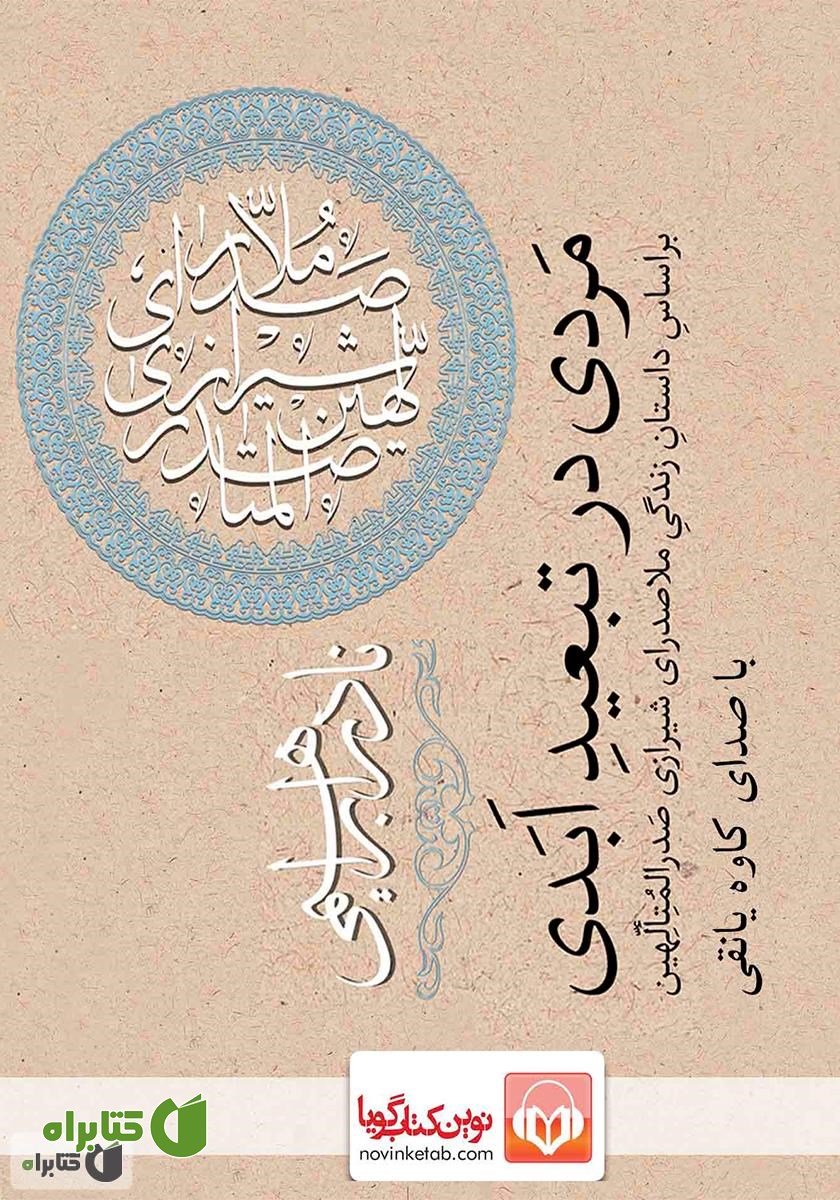 ملاصدرای
شیرازی
صدرالمتألهین
نادر ابراهیمی
مَردی در تبعیدِ اَبَدی
براساسِ داستانِ زندگیِ ملاصدرای شیرازی صَدرالمُتِألِّهین
با صدای کاوه یانقی
نوین کتاب گویا
novinketab.com
کتابراه
کتابراه